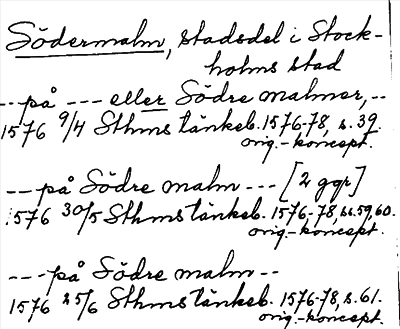 Södermalm, stadsdel i Stock-
holms stad
--på --- eller Södre malmer,--
1576 9/4 Sthms tänkeb. 1576-78, s. 39.
orig.-koncept.
--på Södre malm --- [2 ggr]
1576 30/5 Sthms tänkeb. 1576-78, ss. 59, 60.
orig.-koncept.
---på Södre malm --
1576 25/6 Sthms tänkeb. 1576-78, s. 61.
orig.-koncept.